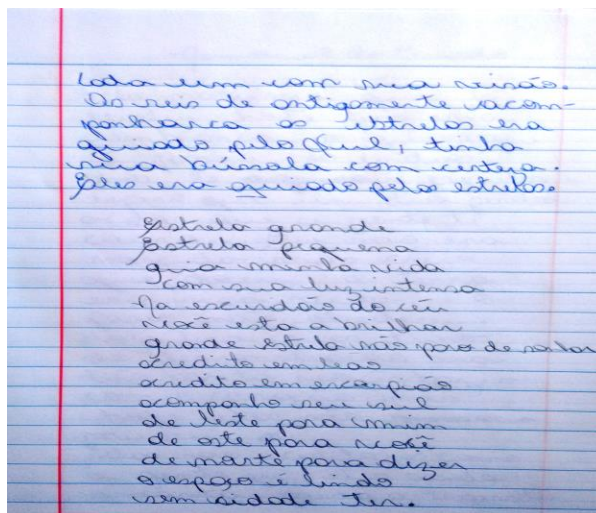 Cada um com sua visão.
Os reis de antigamente acom-
panharca as estrelas era
guiado pelo sul, tinha
sua bússola com certeza.
Eles era guiado pelas estrelas.
Estrela grande
Estrela pequena
guia minha vida
com sua luz intensa
Na escuridão do céu
você esta a brilhar
grande estrela não para de
acredito em leao
acredito em escorpião
acompanho seu sul
de leste para mim
de oste para você
de marte para dizer
o espaço é lindo
sem cidade ter.